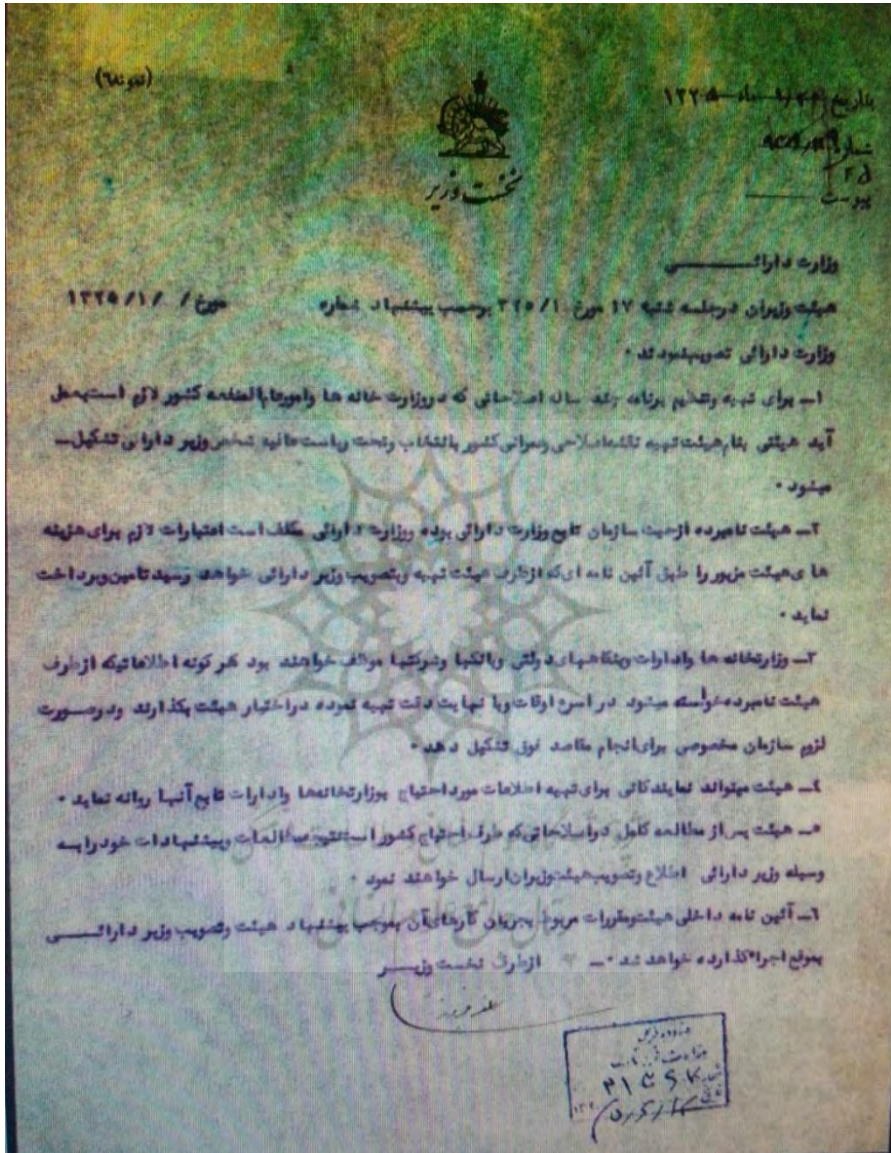 (نمونه٦)
بتاریخ ماه ١٣٢٥
شماره
٢٥
پیوست
نخست وزیر
وزارت دارائـــــی
هیئت وزیران درجلسه شنبه ١٧ مورخ ٣٢٥/١٠ برحسب پیشنهاد شماره مورخ / /١/ ١٣٢٥
وزارت دارائی تصویبنمودند ٠
١ــ برای تهیه وتنظیم برنامه چند ساله اصلاحاتی که دروزارت خانه ها وامورعام‌المنفعه کشور لازم است بعمل
آید هیئتی بنام هیئت تهیه نقشه اصلاحی وعمرانی کشور بانتخاب وتحت ریاست عالیه شخص وزیر دارائی تشکیل ــ
میشود ٠
٢ــ هیئت نامبرده ازحیث سازمان تابع وزارت دارائی بوده ووزارت دارائی مکلف است اعتبارات لازم برای هزینه
ها ی هیئت مزبور را طبق آئین نامه ای که ازطرف هیئت تهیه وبتصویب وزیر دارائی خواهد رسید تامین وپرداخت
نماید ٠
٣ــ وزارتخانه ها وادارات وبنگاههای دولتی وبانکها وشرکتها موظف خواهند بود هر گونه اطلاعاتیکه ازطرف
هیئت نامبرده خواسته میشود در اسرع اوقات وبا نهایت دقت تهیه نموده دراختیار هیئت بگذارند ودرصورت
لزوم سازمان مخصوصی برای انجام مقاصد فوق تشکیل دهد ٠
٤ــ هیئت میتواند نمایندگانی برای تهیه اطلاعات مورد احتیاج بوزارتخانه‌ها وادارات تابع آنها روانه نماید ٠
٥ــ هیئت پس از مطالعه کامل دراصلاحاتی که طرف احتیاج کشور است مطالعات وپیشنهادات خودرا به
وسیله وزیر دارائی اطلاع وتصویب هیئت وزیران ارسال خواهند نمود ٠
٦ــ آئین نامه داخلی هیئت ومقررات مربوط بجریان کارهای آن بموجب پیشنهاد هیئت وتصویب وزیر دارائـــی
بموقع اجراء گذارده خواهد شد ٠ــ ازطرف نخست وزیــر